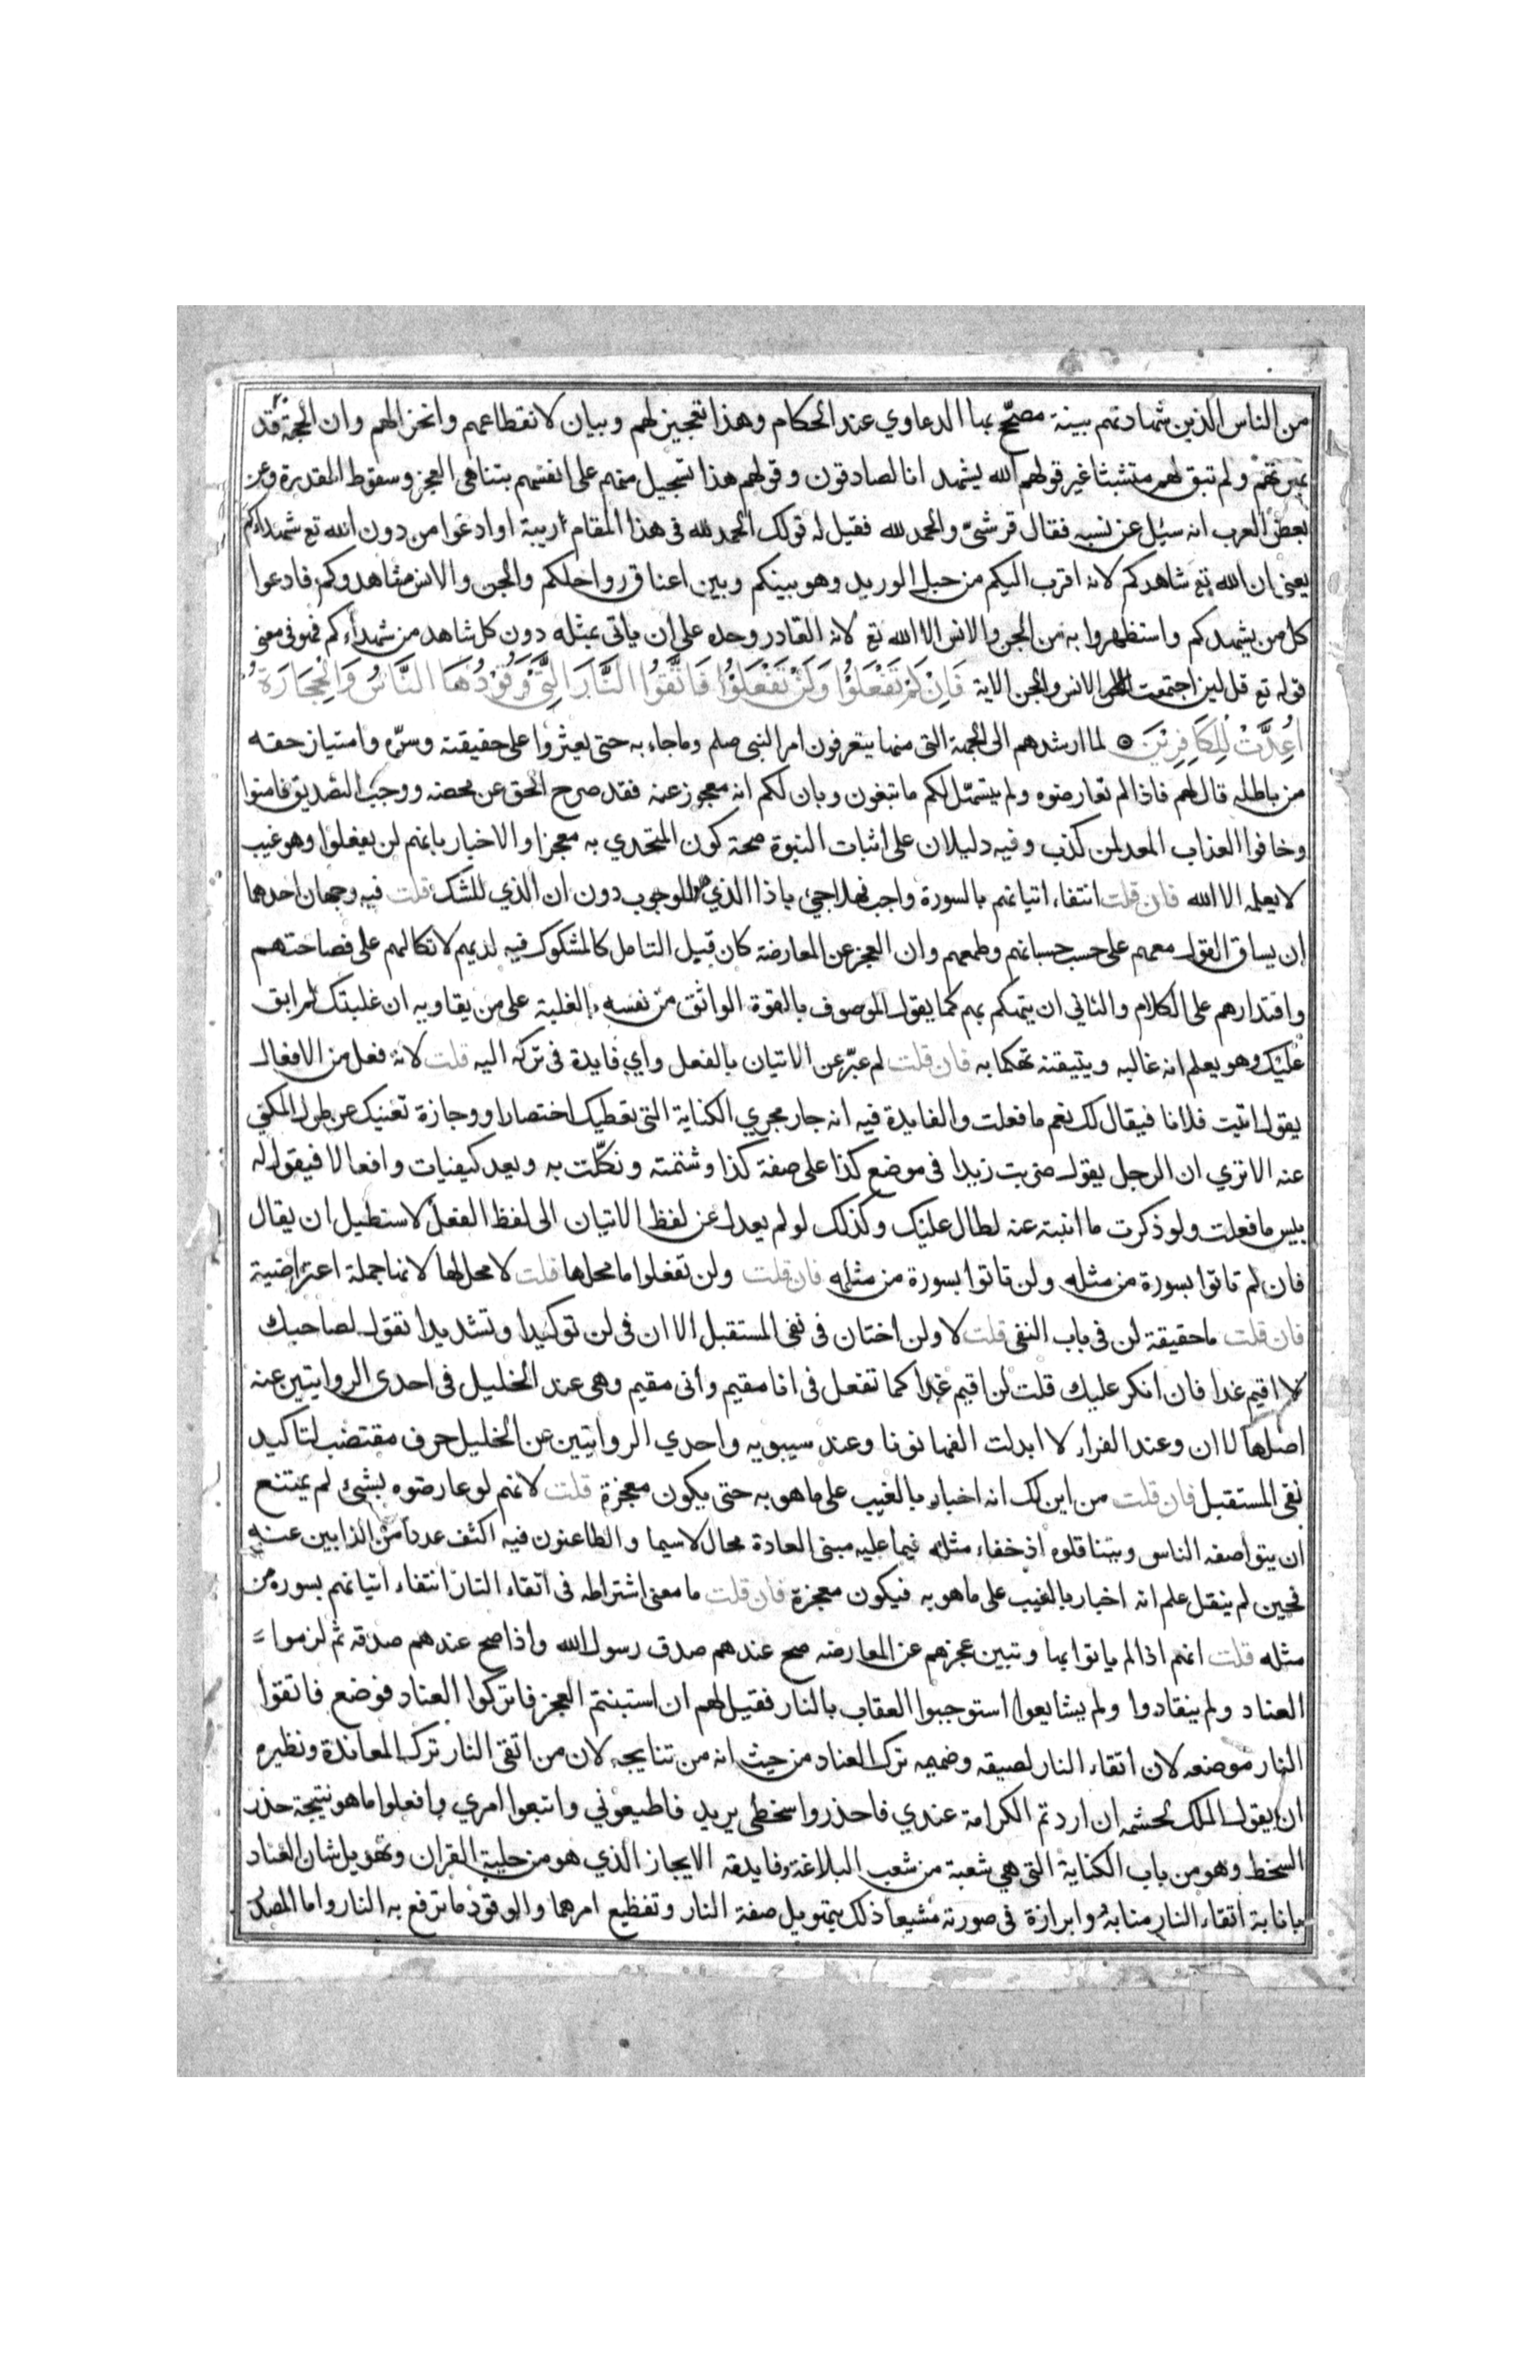 من الناس الذين شهادتهم بينة مصحّح بها الدعاوي عند الحكام وهذا تعجيز لهم وبيان لانقطاعهم وانخزالهم وان الحجة قد
بهرتهم ولم تبق لهم متشبثا غير قولهم الله يشهد انا لصادقون وقولهم هذا تسجيل منهم على انفسهم بتناهي العجز وسقوط المقدرة وعن
بعض العرب انه سيل عن نسبه فقال قرشيّ والحمد لله فقيل له قولك الحمد لله في هذا المقام اريبة او ادعوا من دون الله تع شهداءكم
يعني ان الله تع شاهدكم لانه اقرب اليكم من حبل الوريد وهو بينكم وبين اعناق رواحلكم والجن والانس مشاهدوكم فادعوا
كل من يشهدكم واستظهروا به من الجن والانس الا الله تع لانه القادر وحده على ان ياتي بمثله دون كل شاهد من شهداءكم فهو في معنى
قوله تع قل لين اجتمعت الانس والجن الاية فَاِنْ لَمْ تَفْعَلُوْا وَلَنْ تَفْعَلُوْا فَاتَّقُوا النَّارَ الَّتِي وَقُوْدُهَا النَّاسُ وَالْحِجَارَةُ
اُعِدَّتْ لِلْكَافِرِيْنَ لما ارشدهم الى الجهة التي منها يتعرفون امر النبي صلم وما جاء به حتى يعثروا على حقيقته وسرّه وامتياز حقه
من باطله قال لهم فاذا لم تعارضوه ولم يتسهّل لكم ما تبغون وبان لكم انه معجوز عنه فقد صرح الحق عن محضه ووجب التصديق فامنوا
وخافوا العذاب المعد لمن كذب وفيه دليلان على اثبات النبوة صحة كون المتحدي به معجزا والاخبار بانهم لن يفعلوا وهو غيب
لا يعلمه الا الله فان قلت انتفاء اتيانهم بالسورة واجب فهلا جيء باذا الذي للوجوب دون ان الذي للشك قلت فيه وجهان احدهما
ان يساق القول معهم على حسب حسبانهم وطمعهم وان العجز عن المعارضة كان قبيل التامل كالمشكوك فيه لديهم لاتكالهم على فصاحتهم
واقتدارهم على الكلام والثاني ان يتهكم بهم كما يقول الموصوف بالقوة الواثق من نفسه بالغلبة على من يقاويه ان غلبتك لم ابق
عليك وهو يعلم انه غالبه ويتيقنه تهكما به فان قلت لم عبّر عن الاتيان بالفعل واي فايدة في تركه اليه قلت لانه فعل من الافعال
يقول اتيت فلانا فيقال لك نعم ما فعلت والفايدة فيه انه جار مجري الكناية التي تعطيك اختصارا ووجازة تغنيك عن طول المكني
عنه الا تري ان الرجل يقول ضربت زيدا في موضع كذا على صفة كذا وشتمته ونكّلت به ويعد كيفيات وافعالا فيقول له
بيس ما فعلت ولو ذكرت ما انبته عنه لطال عليك وكذلك لو لم يعدل عن لفظ الاتيان الى لفظ الفعل لاستطيل ان يقال
فان لم تاتوا بسورة من مثله ولن تاتوا بسورة من مثله فان قلت ولن تفعلوا ما محلها قلت لا محل لها لانها جملة اعتراضية
فان قلت ما حقيقة لن في باب النفي قلت لا ولن اختان في نفي المستقبل الا ان في لن توكيدا وتشديدا تقول لصاحبك
لا اقيم غدا فان انكر عليك قلت لن اقيم غدا كما تفعل في انا مقيم واني مقيم وهي عند الخليل في احدى الروايتين عنه
اصلها لا ان وعند الفراء لا ابدلت الفها نونا وعند سيبويه واحدي الروايتين عن الخليل حرف مقتضب لتاكيد
نفي المستقبل فان قلت من اين لك انه اخبار بالغيب على ما هو به حتى يكون معجزة قلت لانهم لو عارضوه بشئ لم يمتنع
ان يتواصفه الناس ويتناقلوه اذ خفاء مثله فيما عليه مبنى العادة محال لاسيما والطاعنون فيه اكثف عددا من الذابين عنه
فحين لم ينقل علم انه اخبار بالغيب على ما هو به فيكون معجزة فان قلت ما معنى اشتراطه في اتقاء النار انتفاء اتيانهم بسورة من
مثله قلت انهم اذا لم ياتوا بها وتبين عجزهم عن المعارضه صح عندهم صدق رسول الله واذا صح عندهم صدقه ثم لزموا
العناد ولم ينقادوا ولم يشايعوا استوجبوا العقاب بالنار فقيل لهم ان استبنتم العجز فاتركوا العناد فوضع فاتقوا
النار موضعه لان اتقاء النار لصيقه وضميمه ترك العناد من حيث انه من نتايجه لان من اتقى النار ترك المعاندة ونظيره
ان يقول الملك لحشمه ان اردتم الكرامة عندي فاحذروا سخطي يريد فاطيعوني واتبعوا امري وافعلوا ما هو نتيجة حذر
السخط وهو من باب الكناية التي هي شعبة من شعب البلاغة وفايدته الايجاز الذي هو من حلية القران وتهويل شان العناد
بانابة اتقاء النار منابه وابرازة في صورته مشيعا ذلك بتهويل صفة النار وتفظيع امرها والوقود ما ترفع به النار واما المصدر